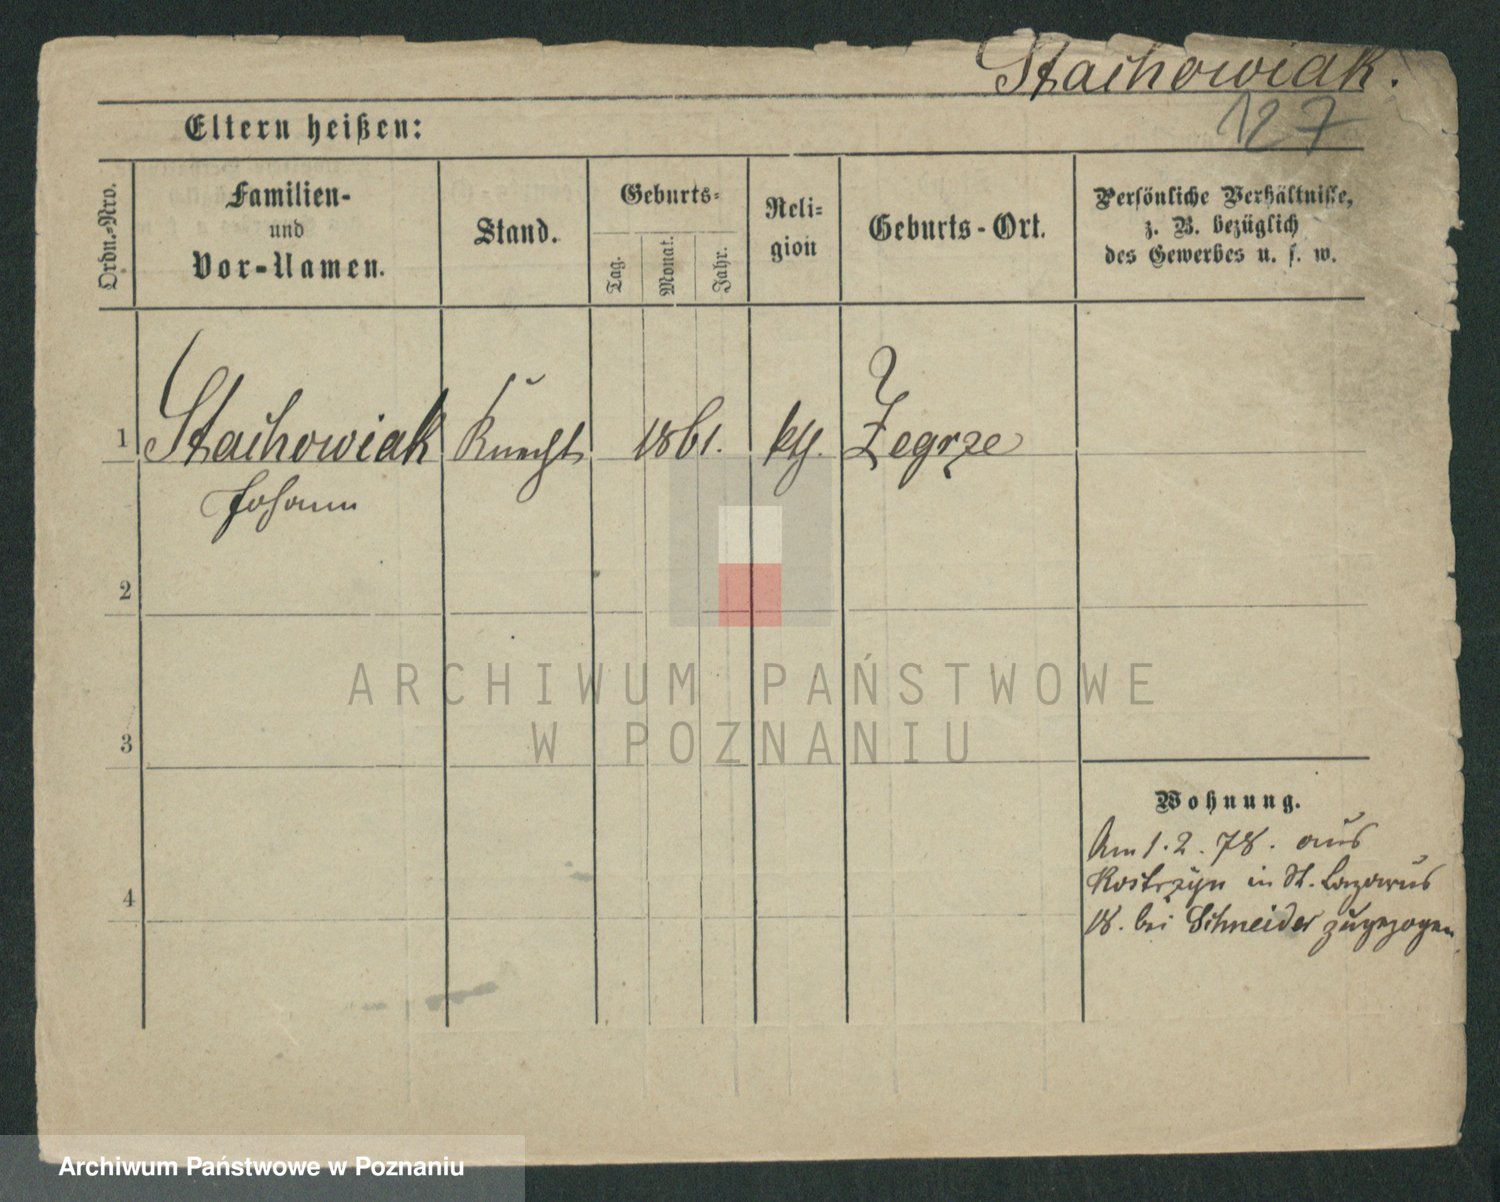 Stachowiak.
127
Eltern heißen:
Ordn.-Nro.
Familien-
und
Vor-Namen.
Stand.
Geburts-
Tag.
Monat.
Jahr.
Reli-
gion
Geburts-Ort.
Persönliche Verhältnisse,
z. B. bezüglich
des Gewerbes u. s. w.
1 Stachowiak Knecht 1861. kth. Zegrze
Johann
2
3
4
Wohnung.
Am 1. 2. 78. aus
Kostrzyn in St. Lazarus
18. bei Schneider zugezogen
ARCHIWUM PAŃSTWOWE
W POZNANIU
Archiwum Państwowe w Poznaniu